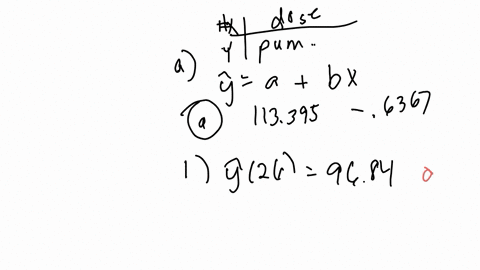 x | dose
y | pum.
a) ŷ = a + bx
a 113.395 -.6367
1) ŷ(26) = 96.84 0